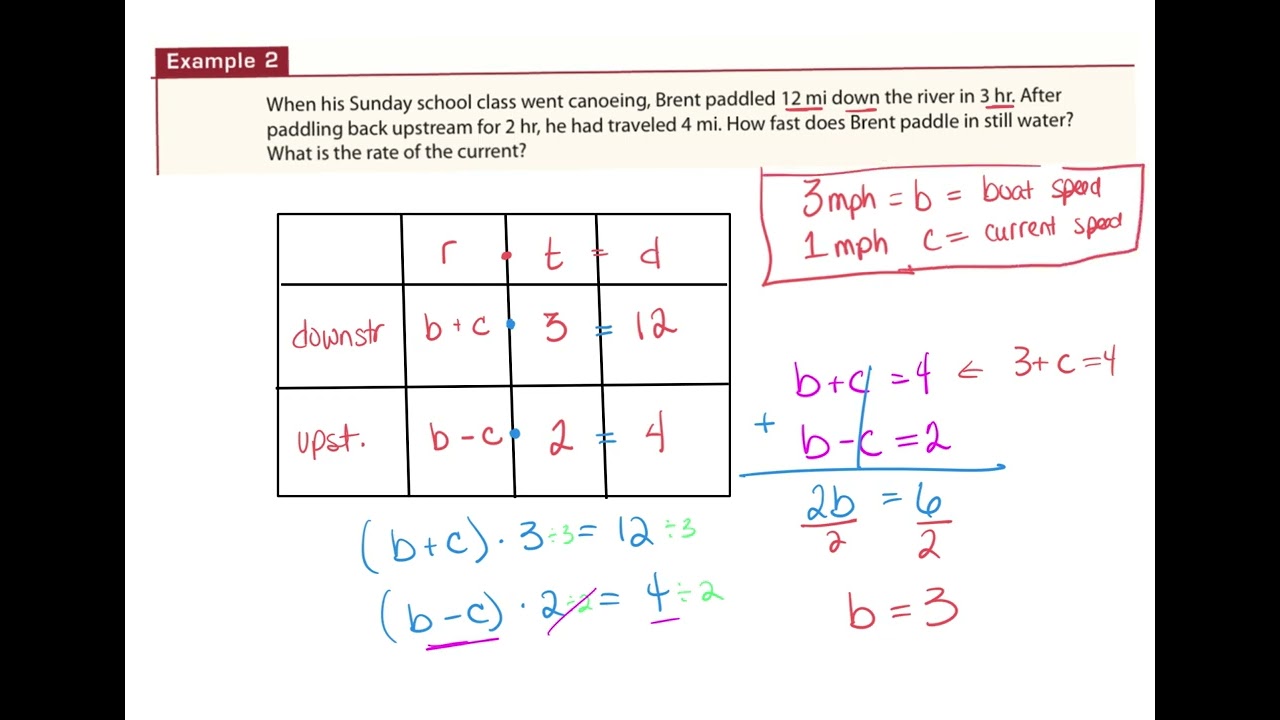 Example 2
When his Sunday school class went canoeing, Brent paddled 12 mi down the river in 3 hr. After
paddling back upstream for 2 hr, he had traveled 4 mi. How fast does Brent paddle in still water?
What is the rate of the current?
3 mph = b = boat speed
1 mph c = current speed
r • t = d
downstr b + c • 3 = 12
upst. b - c • 2 = 4
b + c = 4 ← 3 + c = 4
+ b - c = 2
2b = 6
2 2
b = 3
(b + c) · 3 ÷3 = 12 ÷3
(b - c) · 2 ÷2 = 4 ÷2